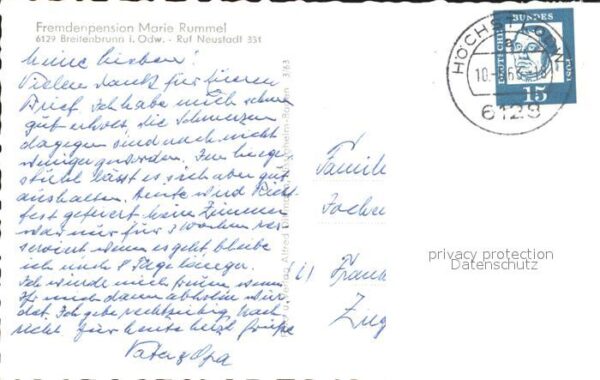 Fremdenpension Marie Rummel
6129 Breitenbrunn i. Odw. - Ruf Neustadt 331
Meine Lieben!
Vielen Dank für Euren
Brief. Ich habe mich schon
gut erholt, die Schmerzen
dagegen sind noch nicht
weniger geworden. Im Liege-
stuhl lässt es sich aber gut
aushalten. Heute wird Richt-
fest gefeiert. Mein Zimmer
war nur für 3 Wochen re-
serviert wenn es geht bleibe
ich noch 8 Tage länger.
Ich würde mich freuen wenn
Ihr mich dann abholen wür-
det. Ich gebe rechtzeitig Nach-
richt. Für heute herzl. Grüße
Vater & Opa
3/83
Familie
Jochen
Frank
Zug
HÖCHST
6128
DEUTSCHE BUNDESPOST
15
privacy protection
Datenschutz